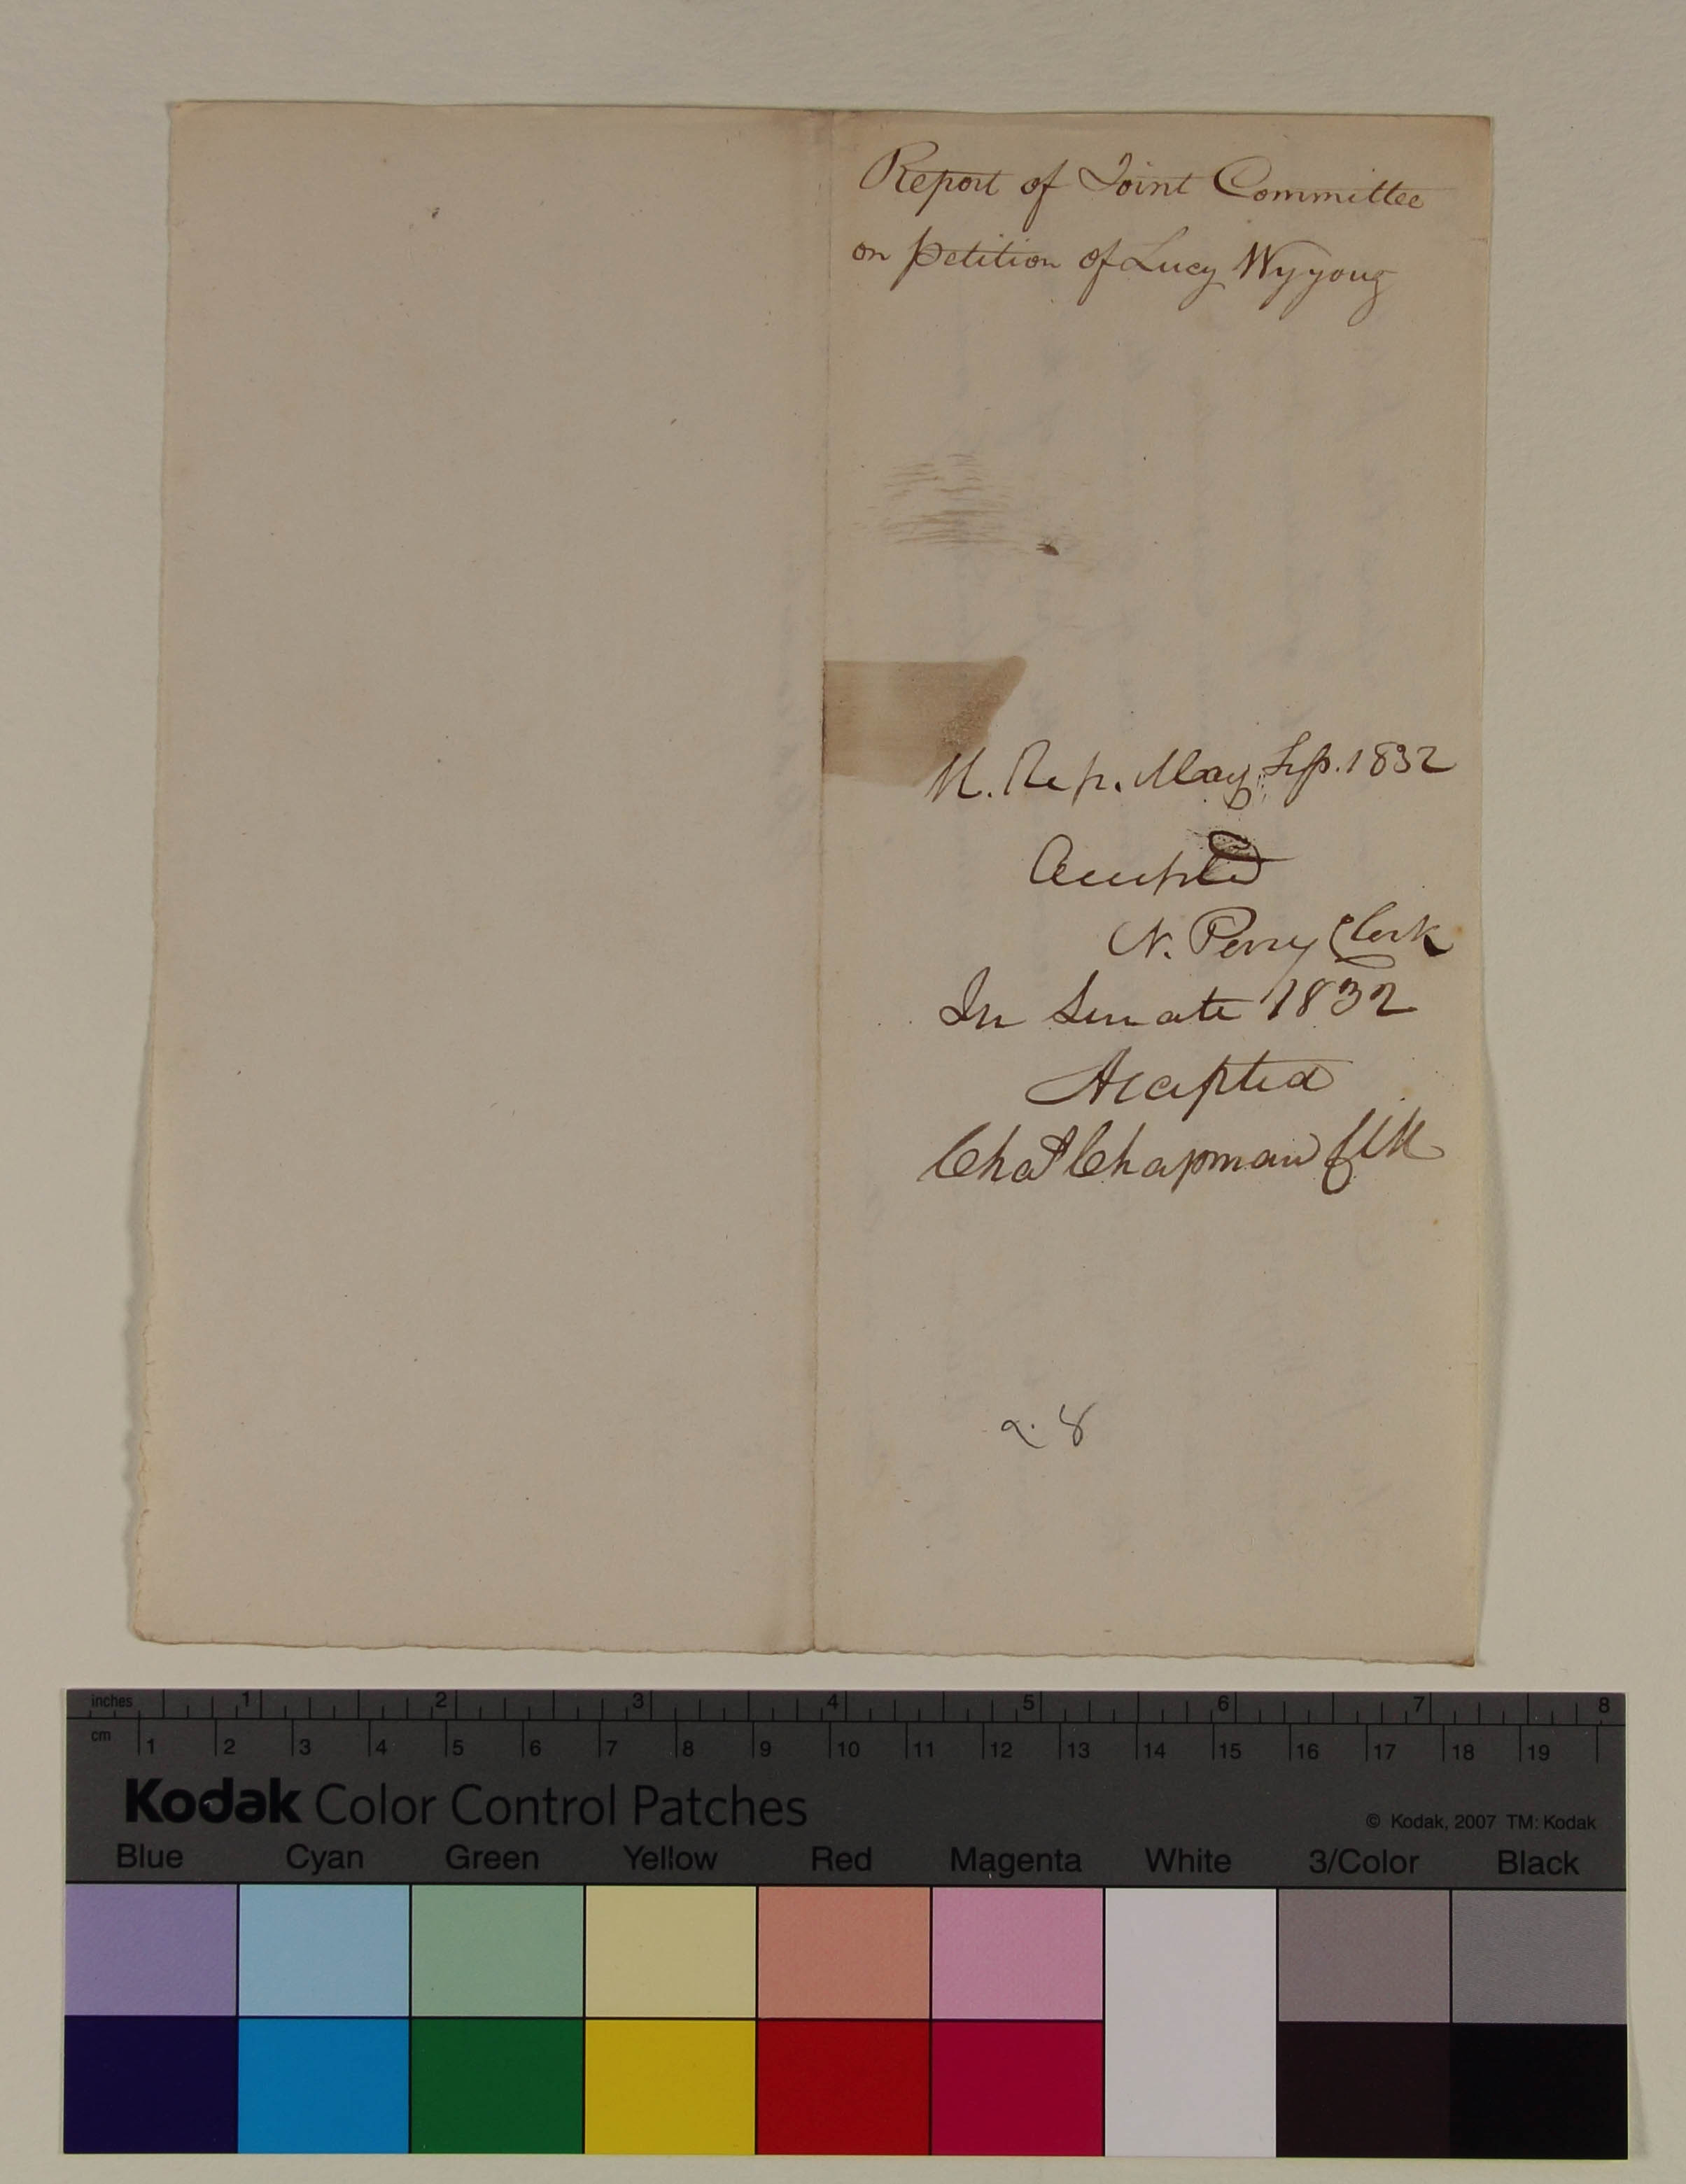 Report of Joint Committee
on petition of Lucy Wyyoug
H. Rep. May Sess. 1832
Accepted
N. Perry Clerk
In Senate 1832
Accepted
Chas Chapman Clk
2. 8
inches 1 2 3 4 5 6 7 8
cm 1 2 3 4 5 6 7 8 9 10 11 12 13 14 15 16 17 18 19
Kodak Color Control Patches
© Kodak, 2007 TM: Kodak
Blue Cyan Green Yellow Red Magenta White 3/Color Black